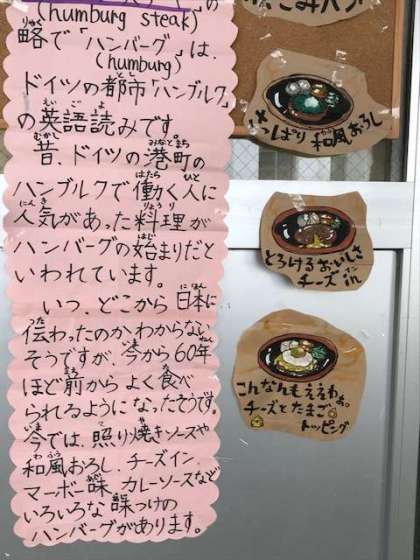 (humburg steak)の
略で「ハンバーグ」は、
(humburg)
ドイツの都市「ハンブルク」
の英語読みです。
昔、ドイツの港町の
ハンブルクで働く人に
人気があった料理が
ハンバーグの始まりだと
いわれています。
いつ、どこから日本に
伝わったのかわからない
そうですが、今から60年
ほど前からよく食べ
られるようになったそうです。
今では、照り焼きソースや
和風おろし、チーズイン、
マーボー味、カレーソースなど
いろいろな味つけの
ハンバーグがあります。
さっぱり和風おろし
とろけるおいしさ
チーズin
こんなんもええわぁ。
チーズとたまご
トッピング